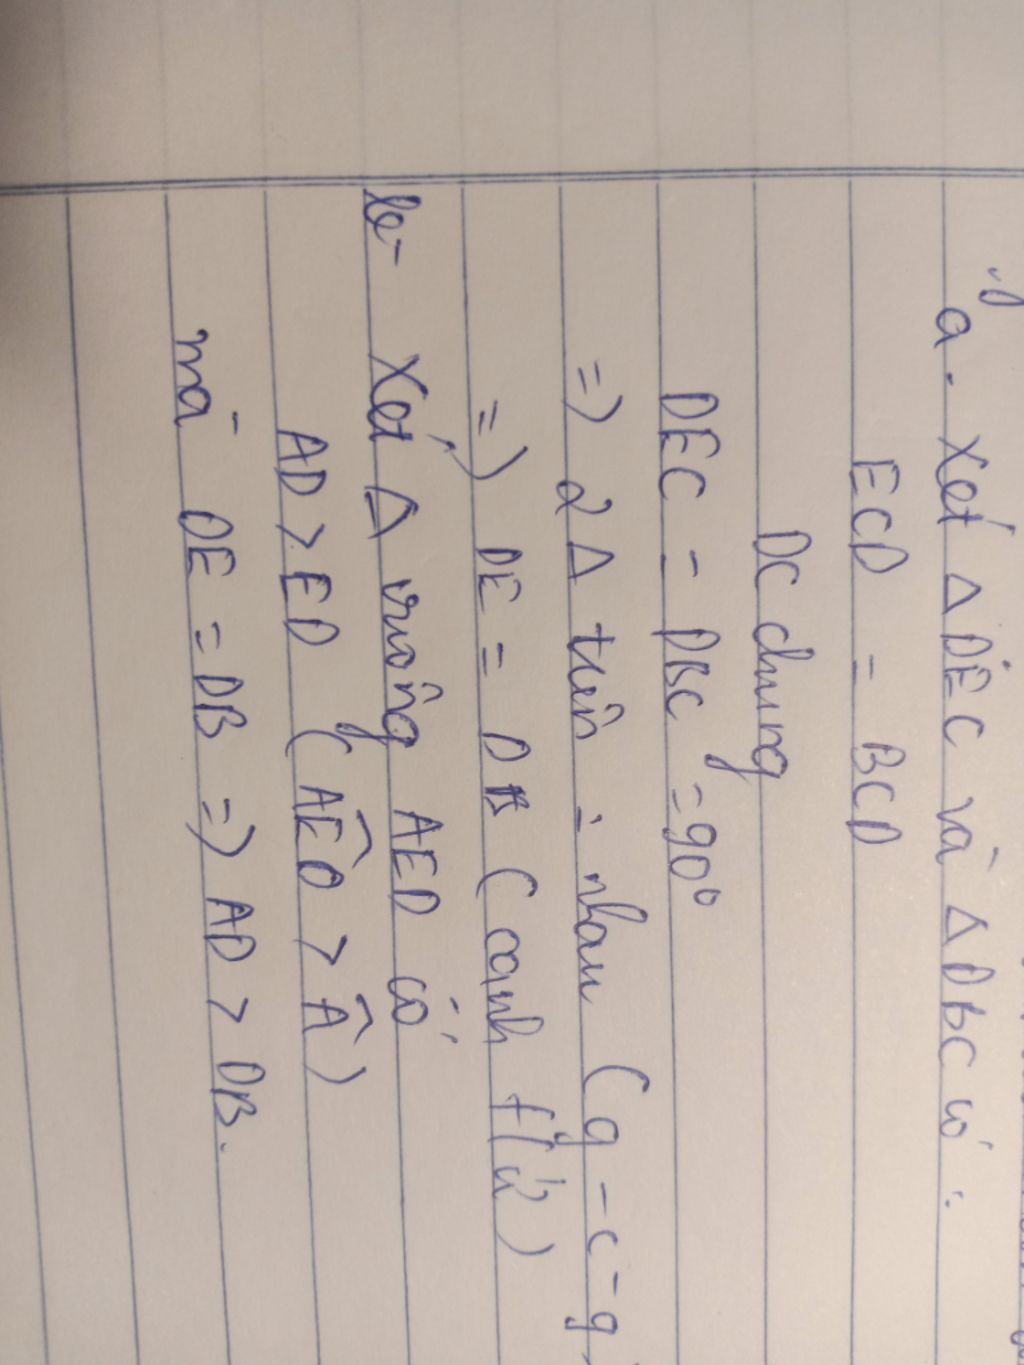 a. Xét Δ DEC và Δ DBC có :
ECD = BCD
DC chung
DEC = DBC = 90°
=> 2 Δ trên = nhau (g-c-g)
=> DE = DB (cạnh t/ứ)
b- Xét Δ vuông AED có
AD > ED (AÊD > Â)
mà DE = DB => AD > DB.